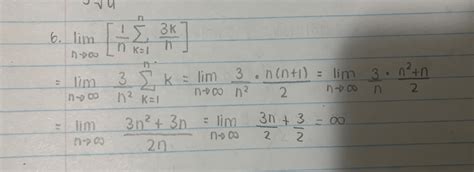 6. lim n→∞ [ 1/n n∑k=1 3k/n ]
= lim n→∞ 3/n² n∑k=1 k = lim n→∞ 3/n² · n(n+1)/2 = lim n→∞ 3/n · n²+n/2
= lim n→∞ 3n²+3n/2n = lim n→∞ 3n/2 + 3/2 = ∞